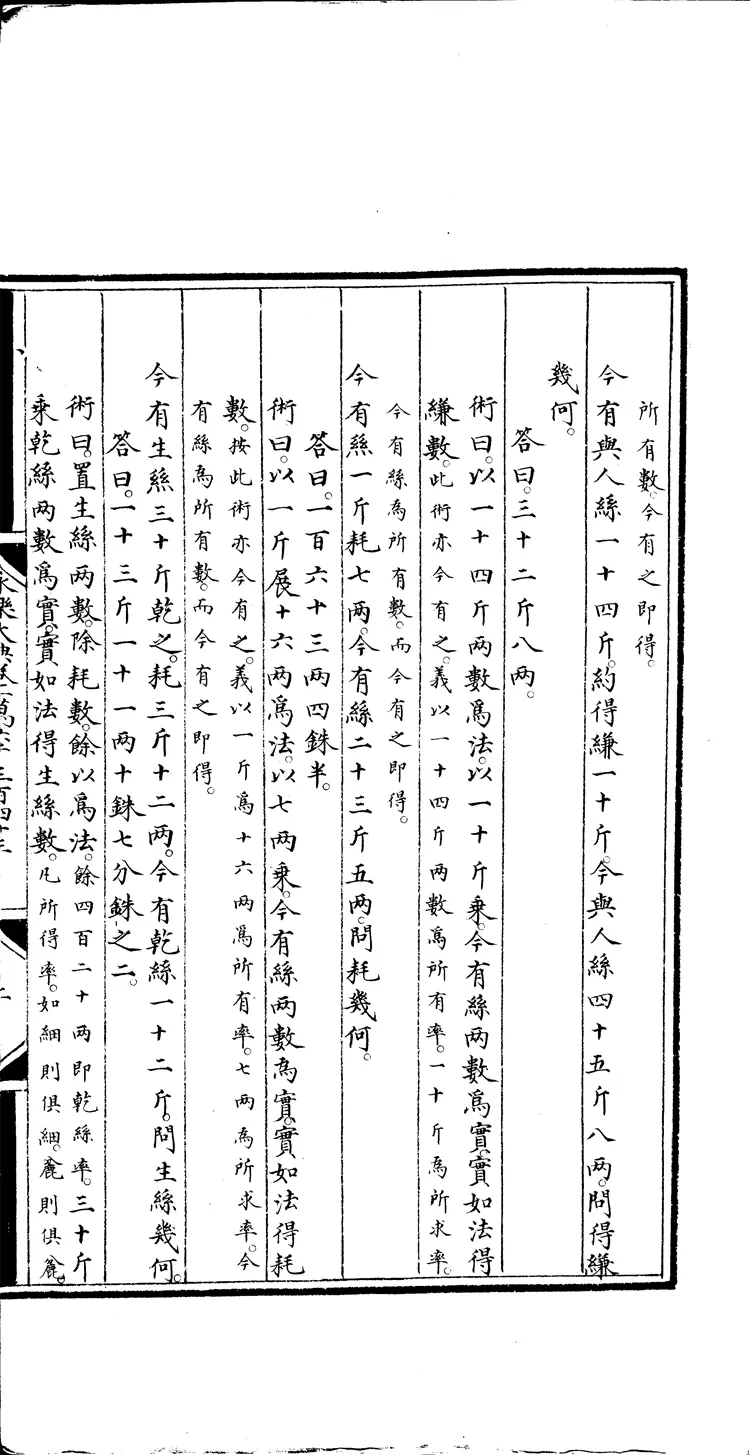 所有數。今有之即得。
今有與人絲一十四斤。約得縑一十斤。今與人絲四十五斤八两。問得縑
幾何。
答曰。三十二斤八两。
術曰。以一十四斤两數爲法。以一十斤乘。今有絲两數爲實。實如法得
縑數。此術亦今有之。義以一十四斤两數爲所有率。一十斤爲所求率。
今有絲爲所有數。而今有之即得。
今有絲一斤耗七两。今有絲二十三斤五两。問耗幾何。
答曰。一百六十三两四銖半。
術曰。以一斤展十六两爲法。以七两乘。今有絲两數爲實。實如法得耗
數。按此術亦今有之。義以一斤爲十六两爲所有率。七两爲所求率。今
有絲爲所有數。而今有之即得。
今有生絲三十斤乾之。耗三斤十二两。今有乾絲一十二斤。問生絲幾何。
答曰。一十三斤一十一两十銖七分銖之二。
術曰。置生絲两數。除耗數。餘以爲法。餘四百二十两即乾絲率。三十斤
乘乾絲两數爲實。實如法得生絲數。凡所得率。如細則俱細。麄則俱麄。